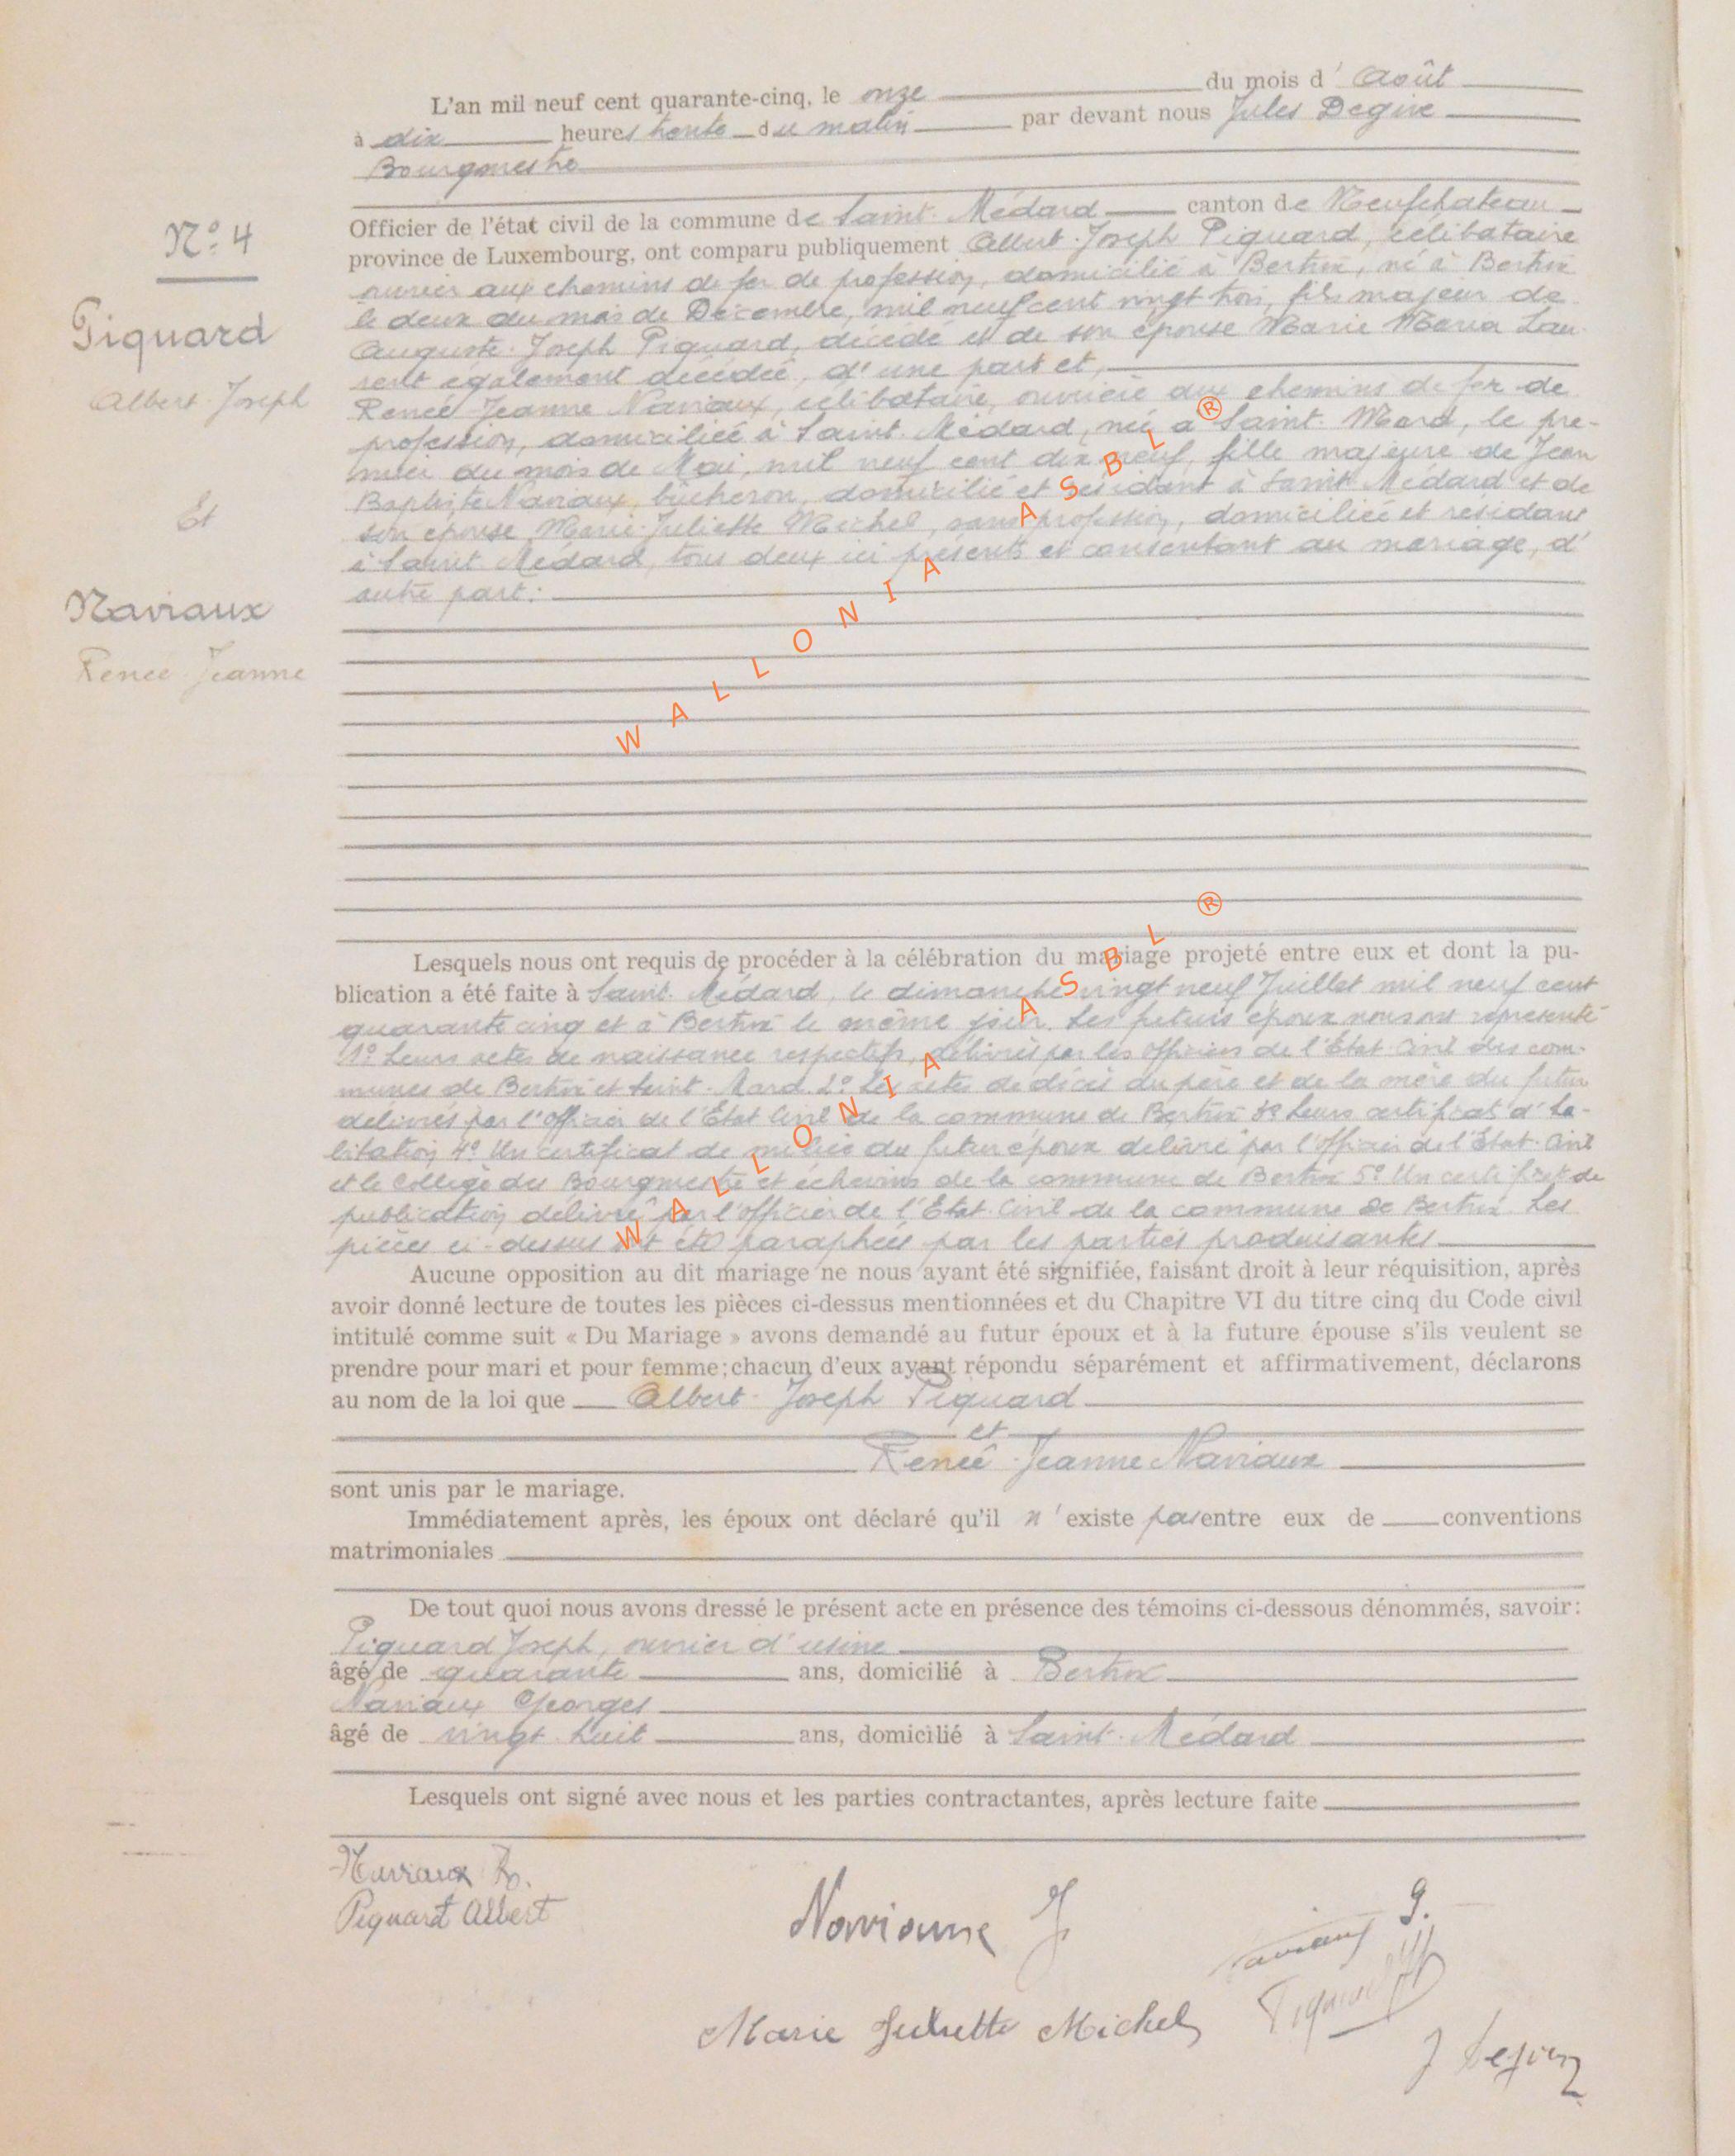 L'an mil neuf cent quarante-cinq, le onze du mois d' Août
à dix heures trente du matin par devant nous Jules Degive
Bourgmestre
N° 4
Officier de l'état civil de la commune de Saint-Médard canton de Neufchateau
province de Luxembourg, ont comparu publiquement Albert-Joseph Piquard, célibataire
ouvrier aux chemins de fer de profession, domicilié à Bertrix, né à Bertrix
le deux du mois de Décembre, mil neuf cent vingt trois, fils majeur de
Piquard
Auguste-Joseph Piquard, décédé et de son épouse Marie Maria Lau-
rent également décédée, d'une part et,
Albert-Joseph
Renée-Jeanne Naviaux, célibataire, ouvrière aux chemins de fer de
profession, domiciliée à Saint-Médard, née à Saint-Mard, le pre-
mier du mois de Mai, mil neuf cent dix neuf, fille majeure de Jean
Baptiste Naviaux, bûcheron, domicilié et résidant à Saint-Médard et de
Et
son épouse Marie-Juliette Michel, sans profession, domiciliée et résidant
à Saint-Médard, tous deux ici présents et consentant au mariage, d'
autre part.
Naviaux
Renée-Jeanne
WALLONIA ASBL ®
Lesquels nous ont requis de procéder à la célébration du mariage projeté entre eux et dont la pu-
blication a été faite à Saint-Médard, le dimanche vingt neuf Juillet mil neuf cent
quarante cinq et à Bertrix le même jour. Les futurs époux nous ont représenté
1° Leurs actes de naissance respectifs, délivrés par les officiers de l'Etat-Civil des com-
munes de Bertrix et Saint-Mard. 2° Les actes de décès du père et de la mère du futur
délivrés par l'officier de l'Etat Civil de la commune de Bertrix 3° Leurs certificat d'ha-
bitation 4° Un certificat de milice du futur époux délivré par l'officier de l'Etat-Civil
et le Collège des Bourgmestre et échevins de la commune de Bertrix 5° Un certificat de
publication délivré par l'officier de l'Etat-Civil de la commune de Bertrix. Les
pièces ci-dessus ont été paraphées par les parties produisantes
WALLONIA ASBL ®
Aucune opposition au dit mariage ne nous ayant été signifiée, faisant droit à leur réquisition, après
avoir donné lecture de toutes les pièces ci-dessus mentionnées et du Chapitre VI du titre cinq du Code civil
intitulé comme suit « Du Mariage » avons demandé au futur époux et à la future épouse s'ils veulent se
prendre pour mari et pour femme; chacun d'eux ayant répondu séparément et affirmativement, déclarons
au nom de la loi que Albert-Joseph Piquard
et
Renée-Jeanne Naviaux
sont unis par le mariage.
Immédiatement après, les époux ont déclaré qu'il n'existe pas entre eux de conventions
matrimoniales
De tout quoi nous avons dressé le présent acte en présence des témoins ci-dessous dénommés, savoir:
Piquard Joseph, ouvrier d'usine
âgé de quarante ans, domicilié à Bertrix
Naviaux Georges
âgé de vingt-huit ans, domicilié à Saint-Médard
Lesquels ont signé avec nous et les parties contractantes, après lecture faite
Naviaux R.
Piquard Albert
Naviaux J
Naviaux G.
Piquard
Marie Juliette Michel
J Degive